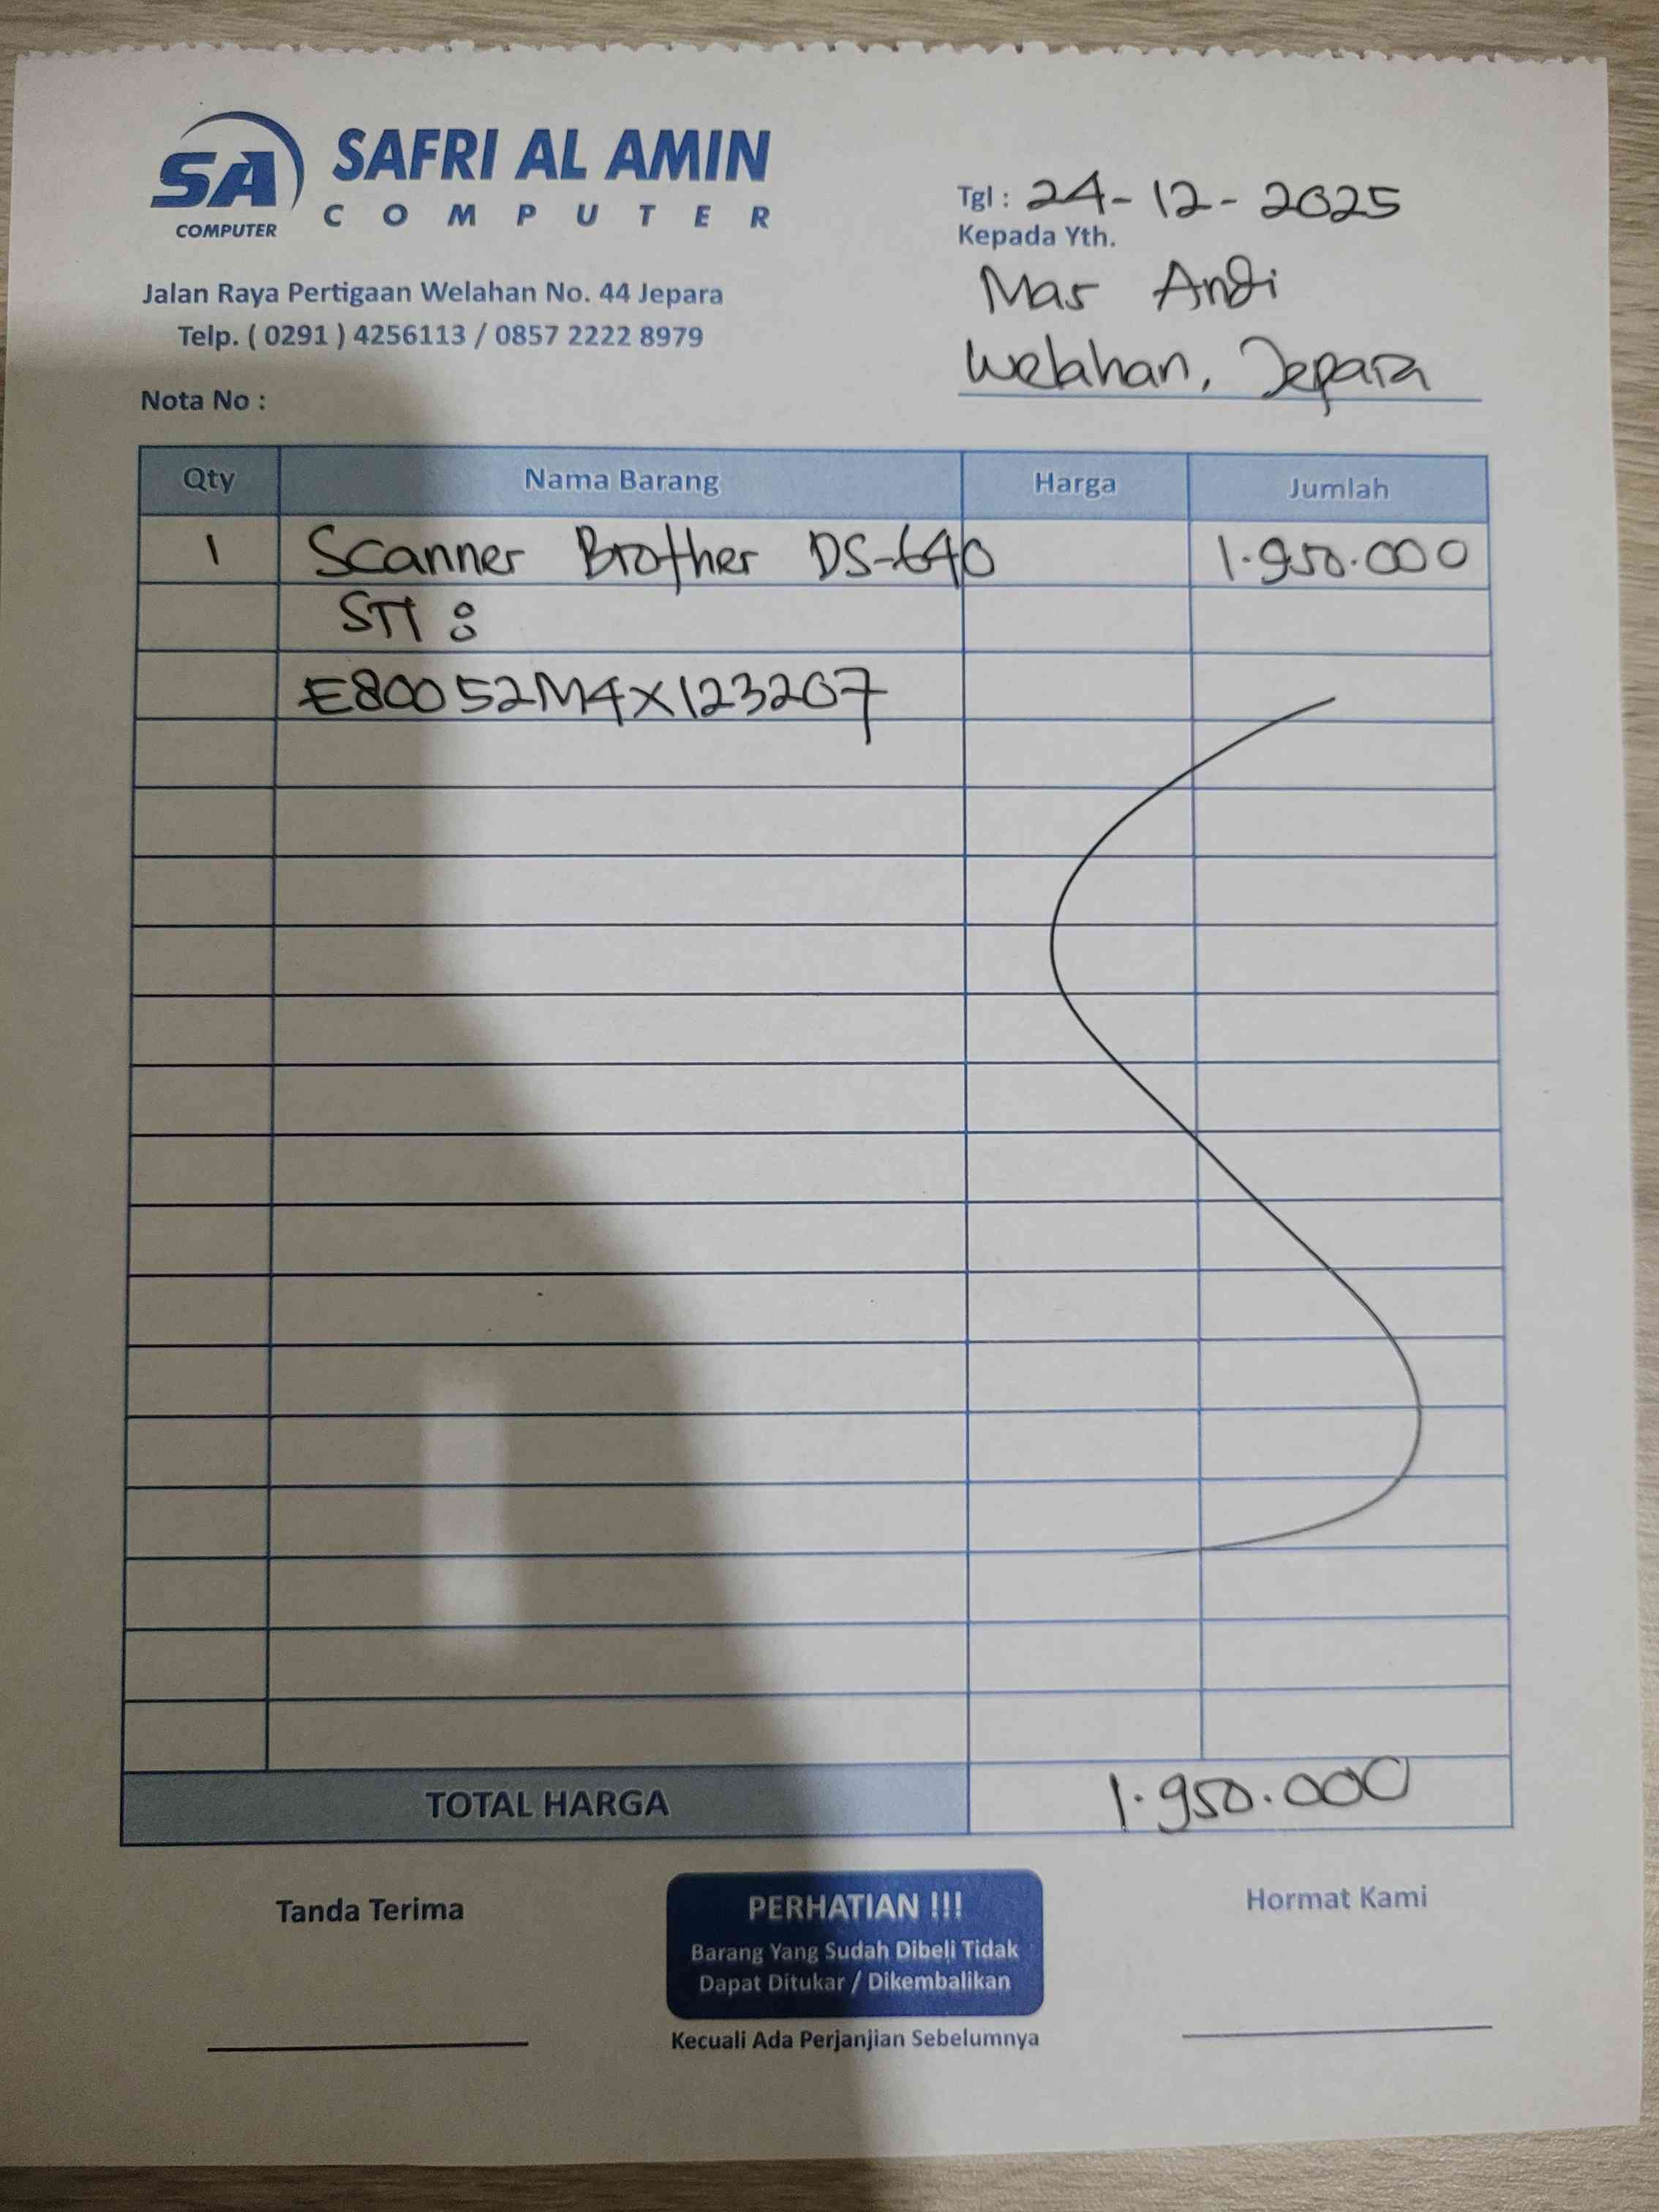 SA
COMPUTER
SAFRI AL AMIN
COMPUTER
Jalan Raya Pertigaan Welahan No. 44 Jepara
Telp. ( 0291 ) 4256113 / 0857 2222 8979
Nota No :
Tgl : 24-12-2025
Kepada Yth.
Mas Andi
Welahan, Jepara
Qty Nama Barang Harga Jumlah
1 Scanner Brother DS-640 1.950.000
:
E80052M4X123207
TOTAL HARGA 1.950.000
Tanda Terima
PERHATIAN !!!
Barang Yang Sudah Dibeli Tidak
Dapat Ditukar / Dikembalikan
Kecuali Ada Perjanjian Sebelumnya
Hormat Kami